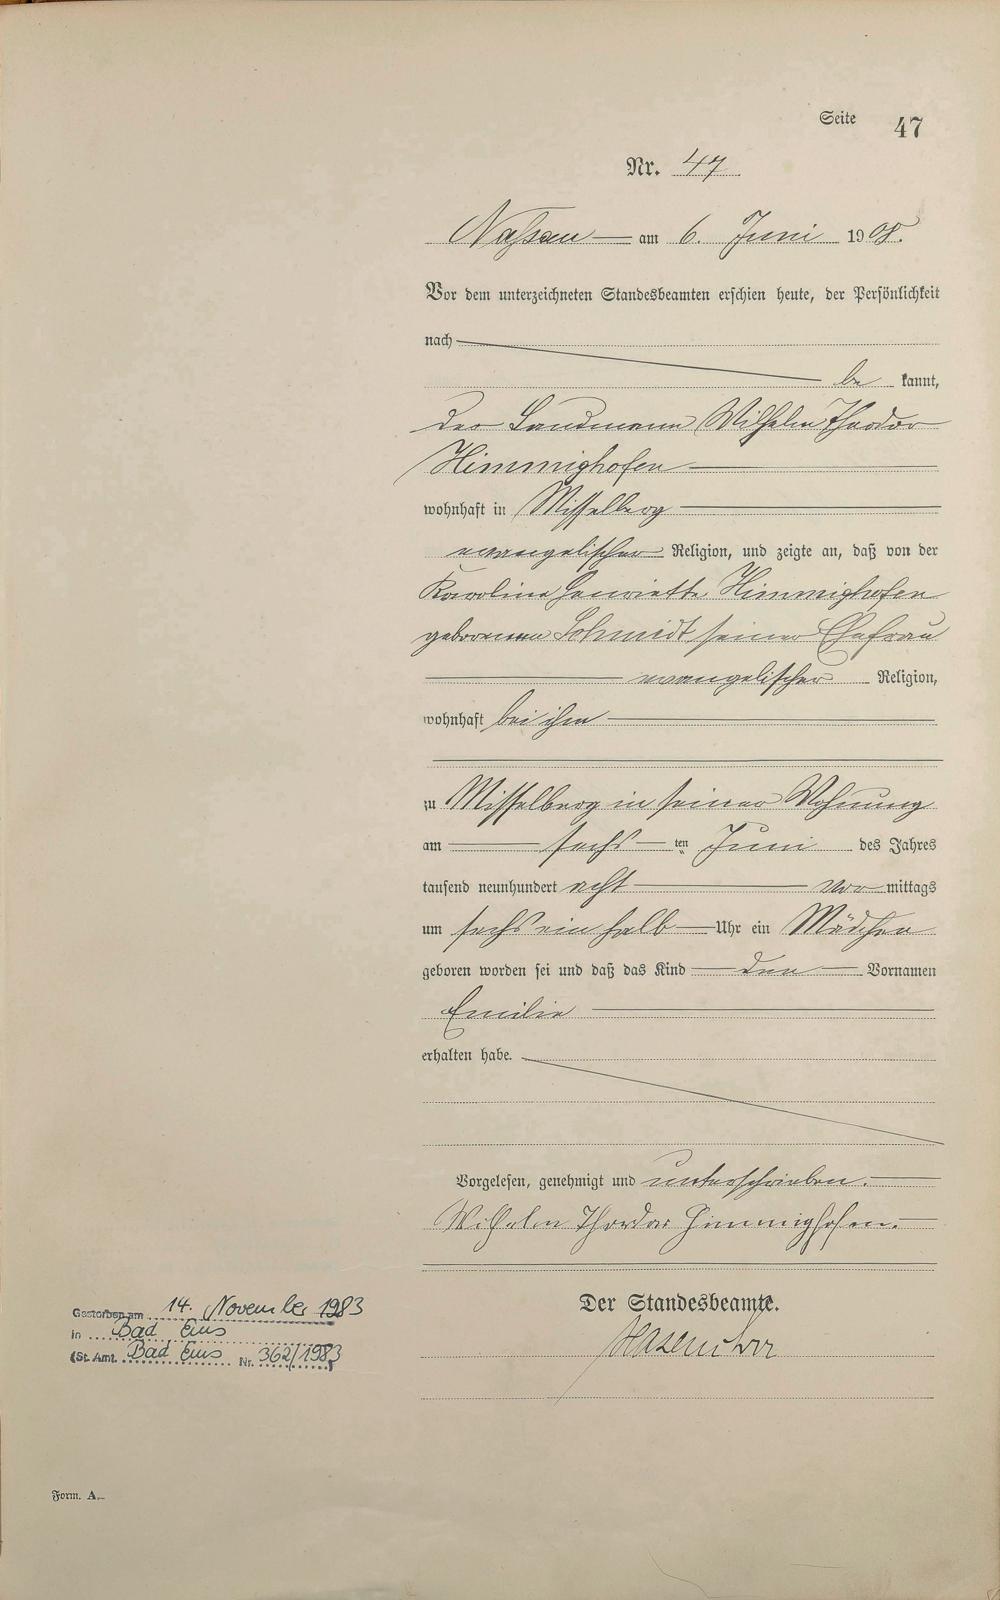 Seite 47
Nr. 47
Nassau am 6. Juni 1908.
Vor dem unterzeichneten Standesbeamten erschien heute, der Persönlichkeit
nach
be kannt,
der Landmann Wilhelm Theodor
Himmighofen
wohnhaft in Misselberg
evangelischer Religion, und zeigte an, daß von der
Karoline Henriette Himmighofen
geborenen Schmidt seiner Ehefrau
evangelischer Religion,
wohnhaft bei ihm
zu Misselberg in seiner Wohnung
am sechs ten Juni des Jahres
tausend neunhundert acht vor mittags
um sechs ein halb Uhr ein Mädchen
geboren worden sei und daß das Kind den Vornamen
Emilie
erhalten habe.
Vorgelesen, genehmigt und unterschrieben.
Wilhelm Theodor Himmighofen.
Der Standesbeamte.
Gestorben am 14. November 1983
in Bad Ems
(St. Amt. Bad Ems Nr. 362/1983
Form. A.